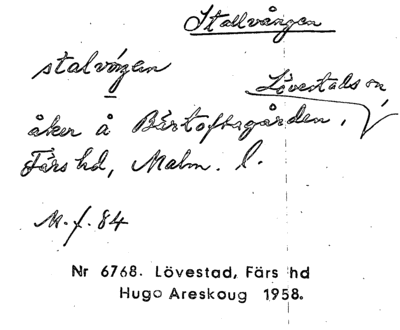 Stallvången
stalvången
Lövestads sn,
åker å Bártoftagården,
Färs hd, Malm. l.
M. f. 84
Nr 6768. Lövestad, Färs hd
Hugo Areskoug 1958.